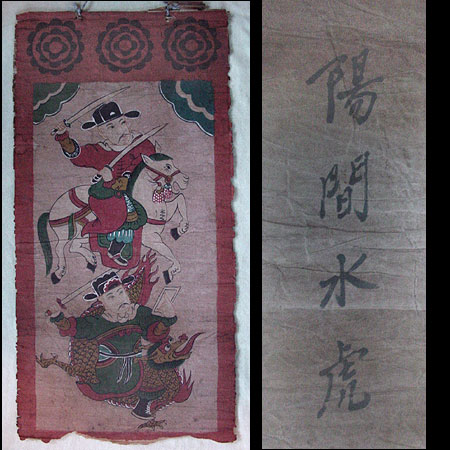 陽間水虎